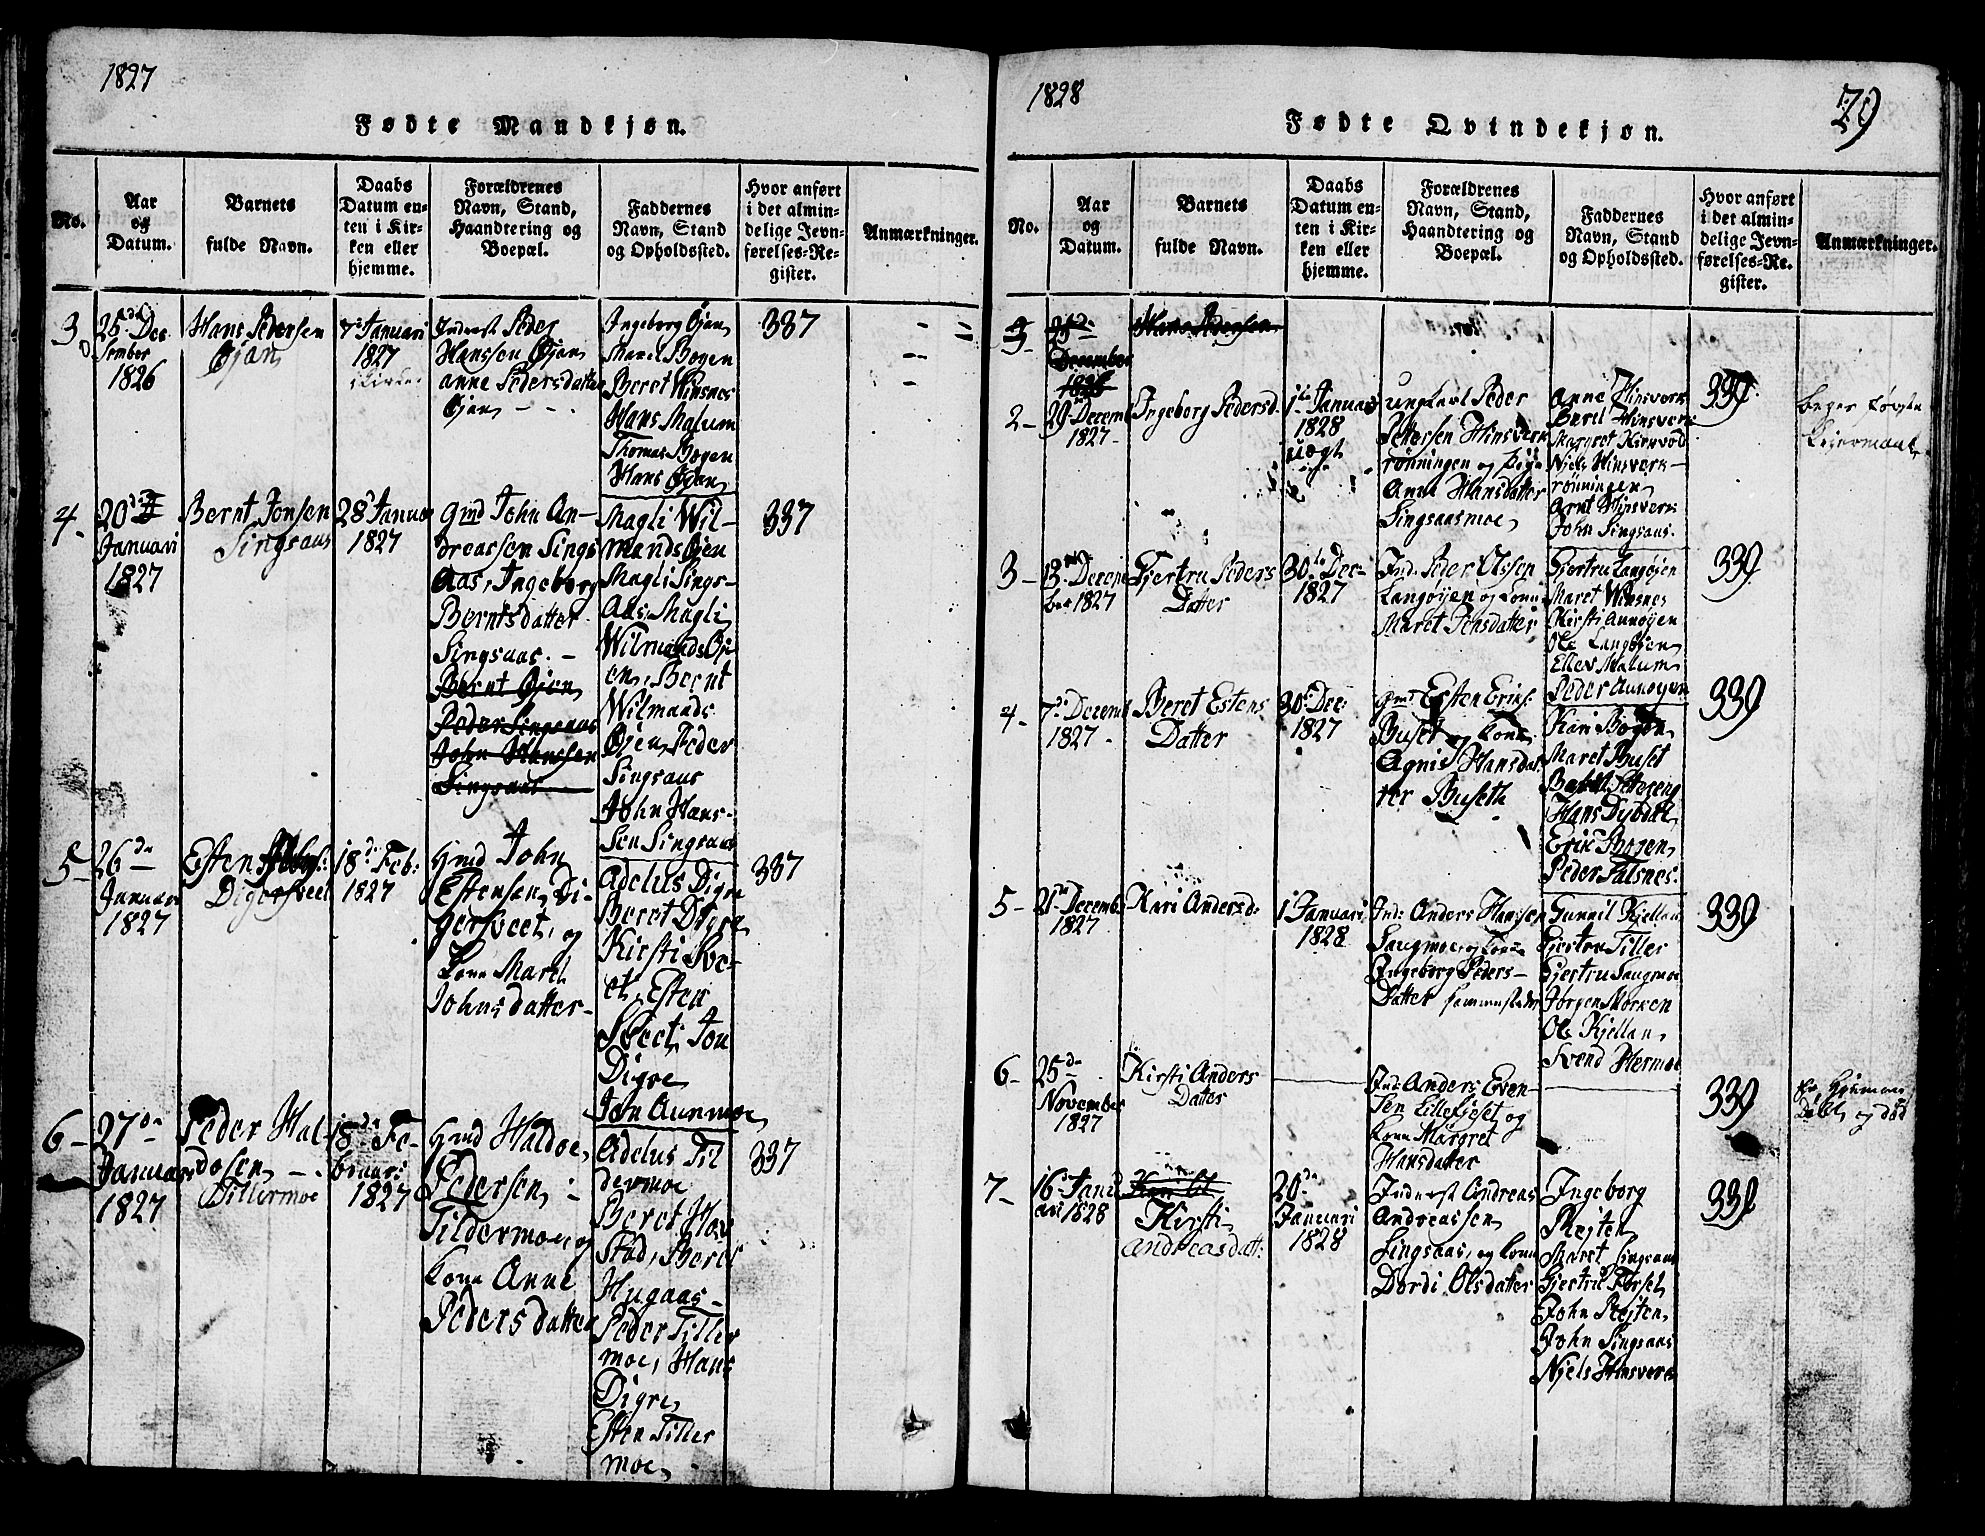 1827
Fødte Mandkjøn.
No.
Aar
og
Datum.
Barnets
fulde Navn.
Daabs
Datum en-
ten i Kir-
ken eller
hjemme.
Forældrenes
Navn, Stand,
Haandtering og
Boepæl.
Faddernes
Navn, Stand
og Opholdssted.
Hvor anført
i det almin-
delige Jevn-
førelses-Re-
gister.
Anmærkninger.
3
26de De-
sember
1826
Hans Pedersen
Øjan
7de Januari
1827
i Kirke
Inderst Peder
Hanssen Øjan
anne Pedersdatter
Øjan
Ingeborg Øjan,
Marel Bogen
Beret Winsnes
Hans Malum
Thomas Bogen
Hans Øjan,
337
4
20de
Januari
1827
Bernt Jonsen
Singsaas
28de Januar
1827
Gmd John An-
dreassen Sings
Aas, Ingeborg
Berntsdatter
Singsaas.
Bernt Øjen,
Peder Singsaas
John Hanssen
Singsaas
Magli Wil-
mandsØjen
Magli Sings-
Aas, Magli
WilmandsØj
en, Bernt
Wilmands
Øjen, Peder
Singsaas
John Hans-
sen Singsaas
337
5
26de
Januari
1827
Esten
Digersveet
18de Feb:
1827
Gmd John
Estensen, Di-
gersveet, og
Kone Maret
Johnsdatter
Adelus Digre
Beret Digre,
Kirsti Sve-
et, Esten
Sveet, Jon
Digre,
Jon Aunmoe,
337
6
27de
Januari
1827
Peder Hal-
dosen,
Tillermoe
18de Fe-
bruari
1827
Gmd Haldoe,
Pedersen,
Tildermoe, og
Kone Anne
Pedersdatter
Adelus Til
dermoe
Beret Hav
Stad, Beret
Hugaas
Peder Tiller
moe, Hans
Digre,
Esten Tiller
moe,
337
1828
Fødte Qvindekjøn.
29
No.
Aar
og
Datum.
Barnets
fulde Navn.
Daabs
Datum en-
ten i Kir-
ken eller
hjemme.
Forældrenes
Navn, Stand,
Haandtering og
Boepæl.
Faddernes
Navn, Stand
og Opholdssted.
Hvor anført
i det almin-
delige Jevn-
førelses-Re-
gister.
Anmærkninger.
3
25de
December
1826
Hans Pedersen
2
29de Decemb
1827
Ingeborg Pedersd.
1de Januari
1828
uægt
ungkarl Peder
Pettersen Hinsverk
rønningen og Pige
Anne Hansdatter
Singsaasmoe,
Anne Hinsverk
Beret Hinsverk
Margret Kirkvold
Niels Hinsverk-
rønningen,
Arnt Hinsverk
John Singsaas.
339
beges første
Leiermaal,
3
13de Decem
ber 1827
Gjertru Peders
Datter
30de Dec-
1827
Ind: Peder Olssen
Langøjen og Kone
Maret Jensdatter
Gjertru Langøjen
Maret Winsnes
Kirsti Aunøyen
Ole Langøjen,
Ellev Malum,
Peder Aunøyen
339
4
7de Decemb
1827
Beret Estens
Datter
30de Dec:
1827
Gmd Esten Erics:
Buset og Kone
Agnis Hansdat
ter Buseth
Kari Bogen,
Maret Buset
Hans Dybdal,
Eric Bogen,
Peder Talsnes.
339
5
21de Decemb
1827
Kari Andersd:
1 Januari
1828
Ind: Anders Hanssen
Laugmoe, og Kone
Ingeborg Peders-
Datter sammesteder
Gunnil Kjellan
Gjertru Tiller
Gjertru Laugmoe
Jørgen Morken
Ole Kjellan,
Svend Hermoe
339
6
25de
November
1827
Kirsti Anders
Datter
Ind: Anders Even-
sen Lillefjeset og
Kone Margret
Hansdatter
339
Hjemme
døbt, og død
7
16de Janu
ari 1828
Kirsti
Andreasdatt:
20de
Januari
1828
Inderst Andreas
Andreassen,
Singsaas, og Kone
Dordi Olsdatter
Ingeborg
Rejten,
Maret Singsaas
Gjertru Forset,
John Rejten,
John Singsaas
Njels Hinsverk
339